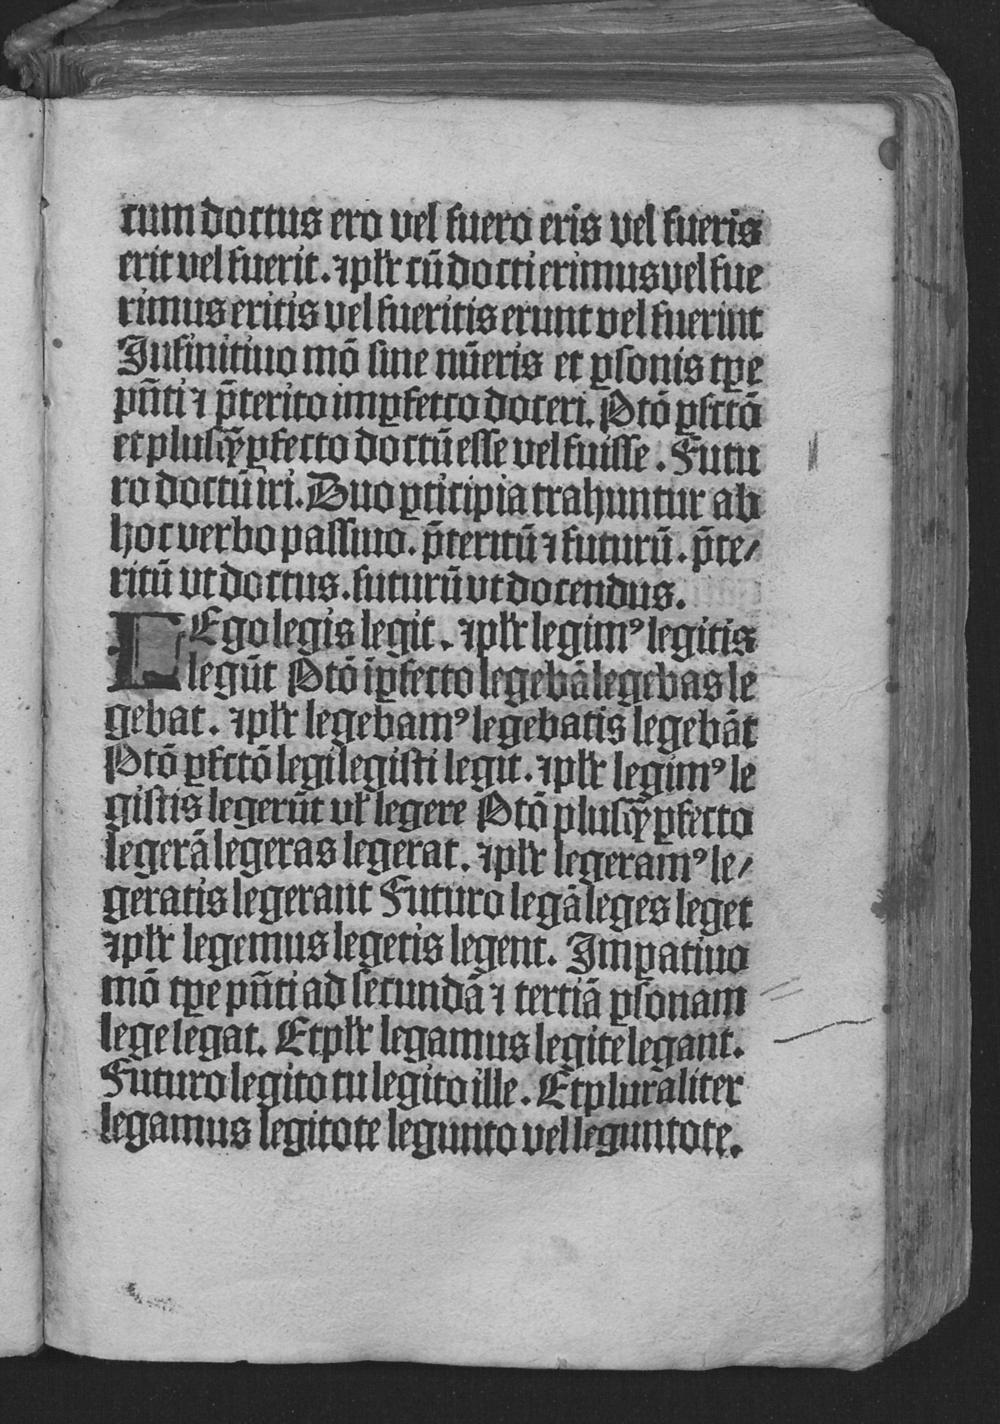 cum doctus ero vel fuero eris vel fueris
erit vel fuerit. ⁊ plr̃ cū docti erimus vel fue
rimus eritis vel fueritis erunt vel fuerint
Infinitiuo mō sine nūeris et ꝑsonis tꝑe
pñti ⁊ p̃terito imꝑfecto doceri. Ptō ꝑfctō
et plusq̃ꝑfecto doctū esse vel fuisse. Futu
ro doctū iri. Duo ꝑticipia trahuntur ab
hoc verbo passiuo. p̃teritū ⁊ futurū. p̃te/
ritū vt doctus. futurū vt docendus.
LEgo legis legit. ⁊ plr̃ legimꝰ legitis
legūt Ptō iꝑfecto legebā legebas le
gebat. ⁊ plr̃ legebamꝰ legebatis legebāt
Ptō ꝑfctō legi legisti legit. ⁊ plr̃ legimꝰ le
gistis legerūt vł legere Ptō plusq̃ꝑfecto
legerā legeras legerat. ⁊ plr̃ legeramꝰ le/
geratis legerant Futuro legā leges leget
⁊ plr̃ legemus legetis legent. Imꝑatiuo
mō tꝑe pñti ad secundā ⁊ tertiā ꝑsonam
lege legat. Et plr̃ legamus legite legant.
Futuro legito tu legito ille. Et pluraliter
legamus legitote legunto vel leguntote.